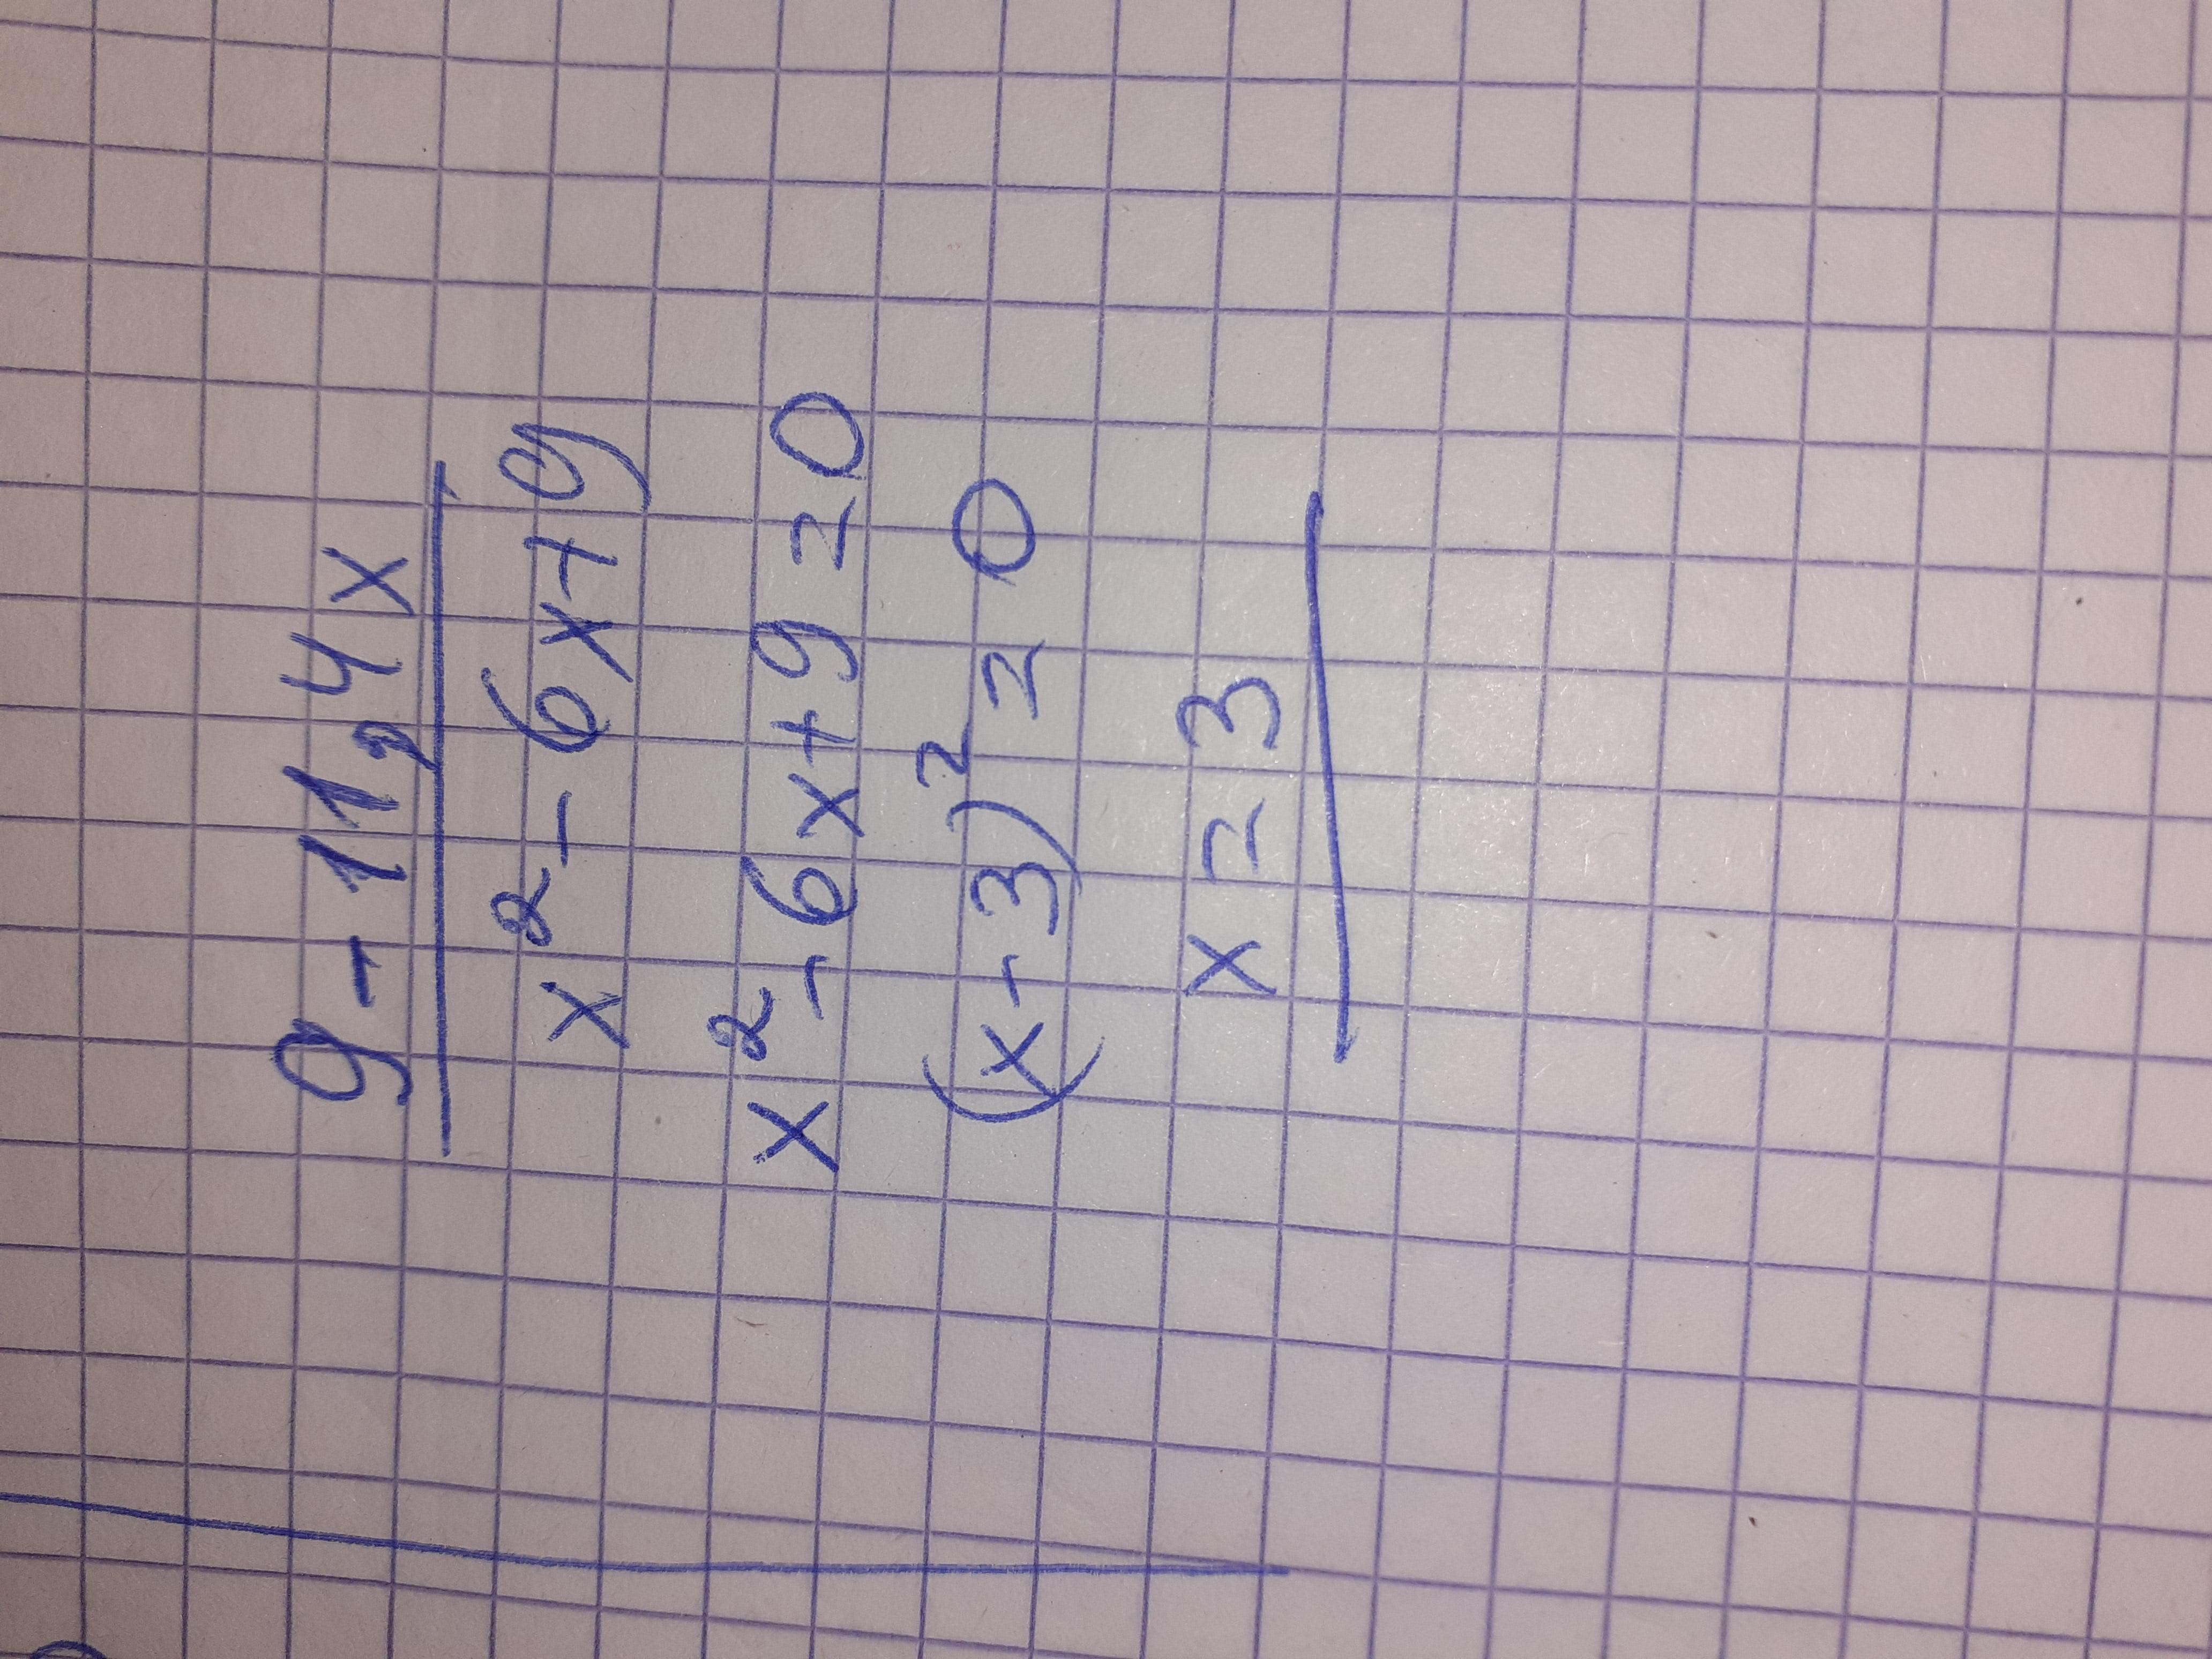 9 - 11,4x
x² - 6x + 9
x² - 6x + 9 = 0
(x - 3)² = 0
x = 3